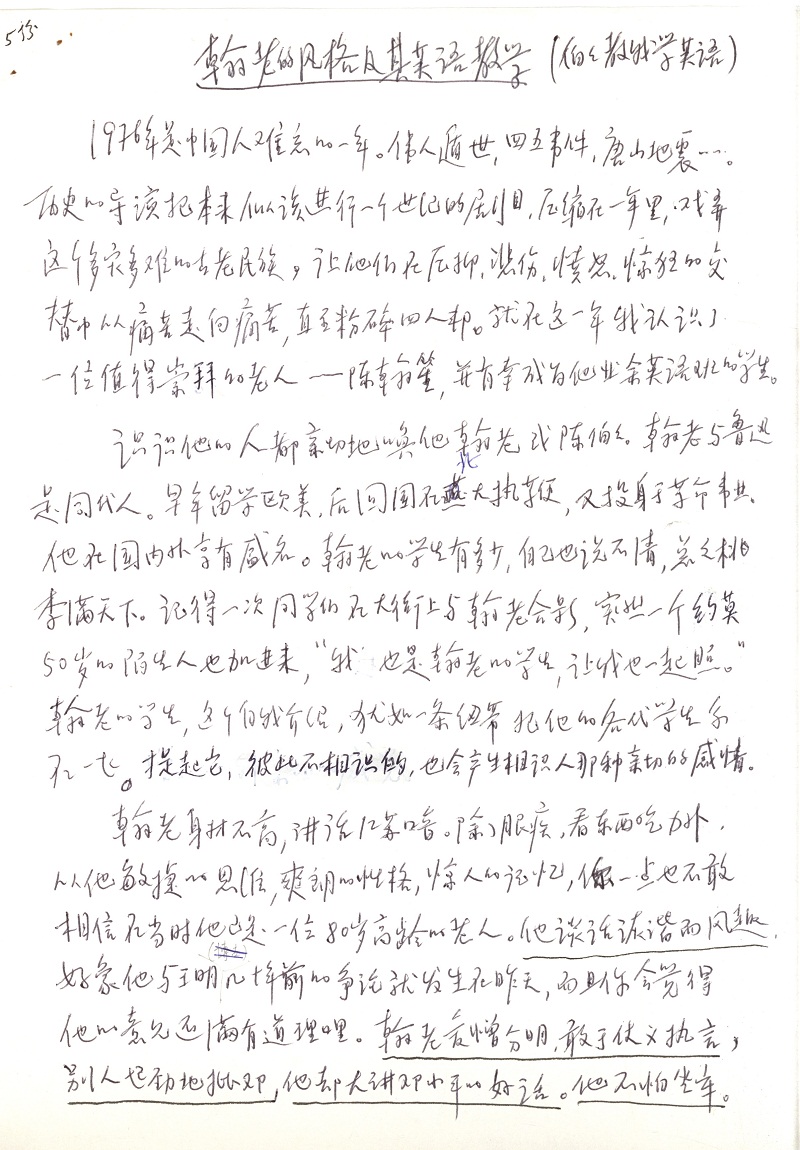 5份
翰老的风格及其英语教学(伯伯教我学英语)
1976年是中国人难忘的一年。伟人遁世,四五事件,唐山地震……。
历史的导该把本来似该进行一个世纪的剧目,压缩在一年里,戏弄
这个多灾多难的古老民族,让他们在压抑、悲伤、愤怒、惊狂的交
替中从痛苦走向痛苦,直至粉碎四人帮。就在这一年我认识了
一位值得崇拜的老人——陈翰笙,并有幸成为他业余英语班的学生。
认识他的人都亲切地唤他翰老或陈伯伯。翰老与鲁迅
是同代人。早年留学欧美,后回国在北大执鞭,又投身于革命事业。
他在国内外享有盛名。翰老的学生有多少,自己也说不清,总之桃
李满天下。记得一次同学们在大街上与翰老合影,突然一个约莫
50岁的陌生人也加进来,“我也是翰老的学生,让我也一起照。”
翰老的学生,这个自我介绍,犹如一条纽带把他的各代学生系
在一起。提起它,彼此不相识的,也会产生相识人那种亲切的感情。
翰老身材不高,讲话江苏口音。除了眼疾,看东西吃力外,
从他敏捷的思维,爽朗的性格,惊人的记忆,你一点也不敢
相信在当时他已是一位80岁高龄的老人。他谈话诙谐而风趣,
好象他与王明几十年前的争论就发生在昨天,而且你会觉得
他的意见还满有道理哩。翰老爱憎分明,敢于仗义执言,
别人起劲地批邓,他却大讲邓小平的好话。他不怕坐牢。